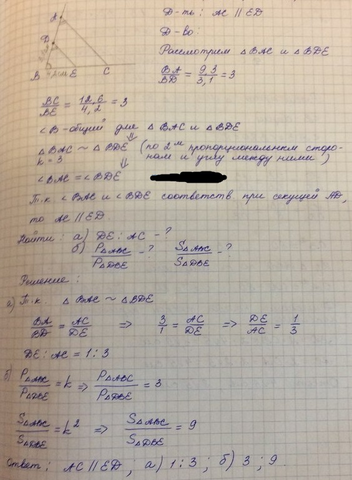 Д-ть: AC || ED
Д-во:
Рассмотрем △BAC и △BDE
BA/BD = 9,3/3,1 = 3
BC/BE = 12,6/4,2 = 3
∠B - общий для △BAC и △BDE
△BAC ~ △BDE (по 2м пропорциональным сторо-
k = 3 нам и углу между ними)
∠BAC = ∠BDE
Т.к. ∠BAC и ∠BDE соответств. при секущей AD,
то AC || ED
Найти: а) DE : AC - ?
б) P△ABC/P△DBE - ? S△ABC/S△DBE - ?
Решение:
а) Т.к. △BAC ~ △BDE
BA/BD = AC/DE ⇒ 3/1 = AC/DE ⇒ DE/AC = 1/3
DE : AC = 1 : 3
б) P△ABC/P△DBE = k ⇒ P△ABC/P△DBE = 3
S△ABC/S△DBE = k² ⇒ S△ABC/S△DBE = 9
Ответ: AC || ED, а) 1:3; б) 3; 9